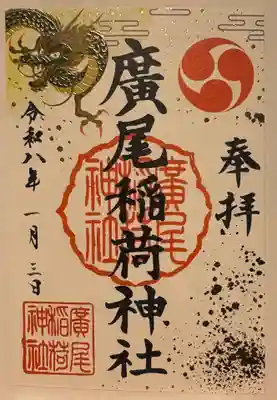 奉拝
廣尾稲荷神社
廣尾
稲荷
神社
令和八年 一月 三日
廣尾
稲荷
神社